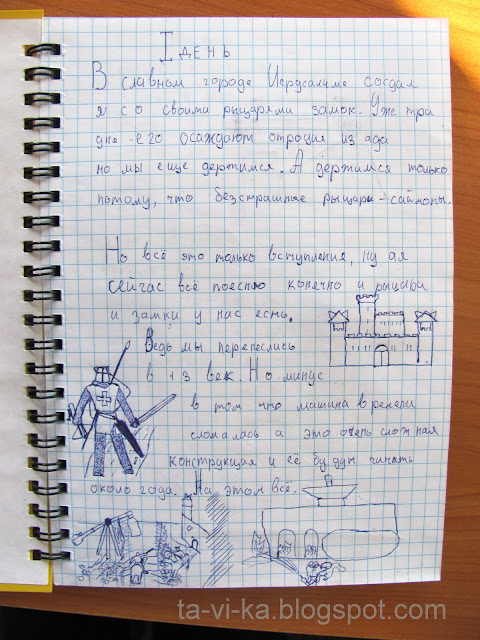 I день
В славном городе Иерусалиме создал
я со своими рыцарями замок. Уже три
дня его осаждают отродия из ада
но мы еще дертимся. А держимся только
потому, что безстрашные рыцари - саймоны.
Но всё это только вступления, ну а я
сейчас всё поестю конечно и рыцари
и замки у нас есть.
Ведь мы перенеслись
в 13 век. Но минус
в том что машина времени
сломалась а это очень сложная
конструкция и её будут чинать
около года. На этом всё.
ta-vi-ka.blogspot.com